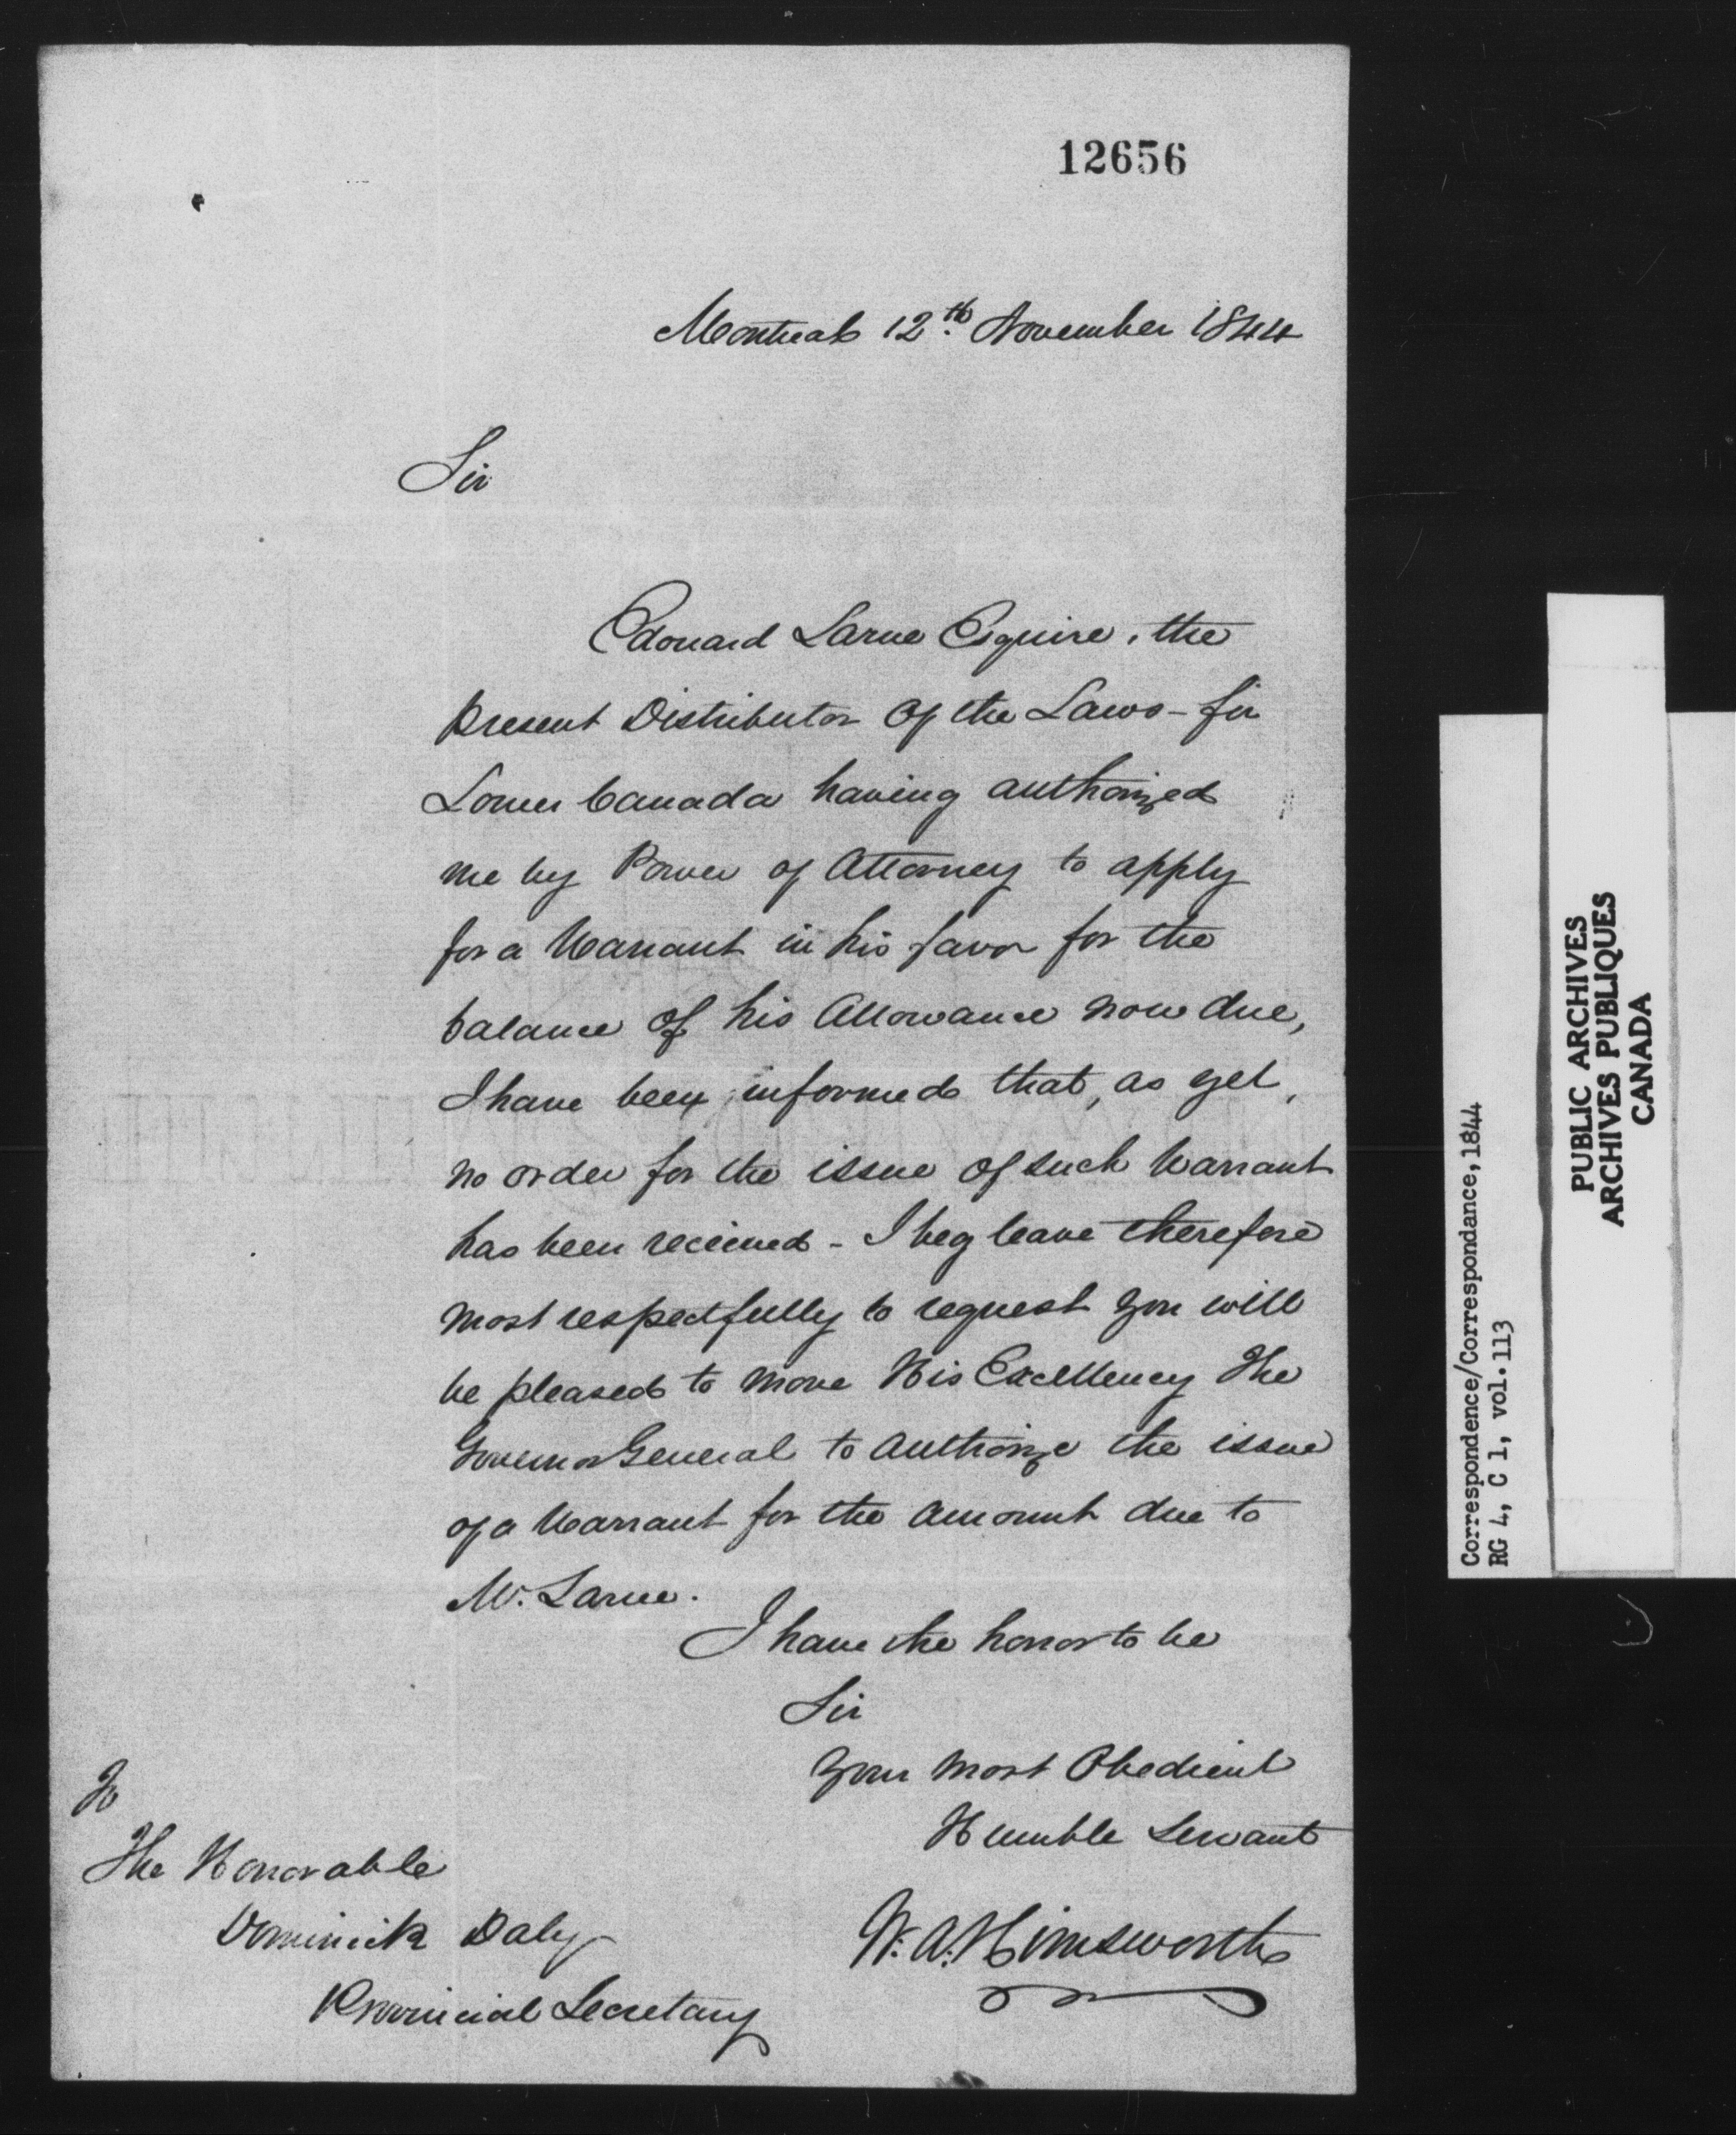 12656
Montreal 12th. November 1844
Sir
Edouard Larue Esquire, the
present Distributor of the Laws - for
Lower Canada having authorized
me by Power of Attorney to apply
for a Warrant in his favor for the
balance of his Allowance now due,
I have been informed that, as yet,
no order for the issue of such Warrant
has been received - I beg leave therefore
most respectfully to request you will
be pleased to move His Excellency The
Governor General to authorize the issue
of a Warrant for the amount due to
Mr. Larue.
I have the honor to be
Sir
Your most Obedient
Humble Servant
W. A. Himsworth
To
The Honorable
Dominick Daly
Provincial Secretary
Correspondence/Correspondance, 1844
RG 4, C 1, vol. 113
PUBLIC ARCHIVES
ARCHIVES PUBLIQUES
CANADA